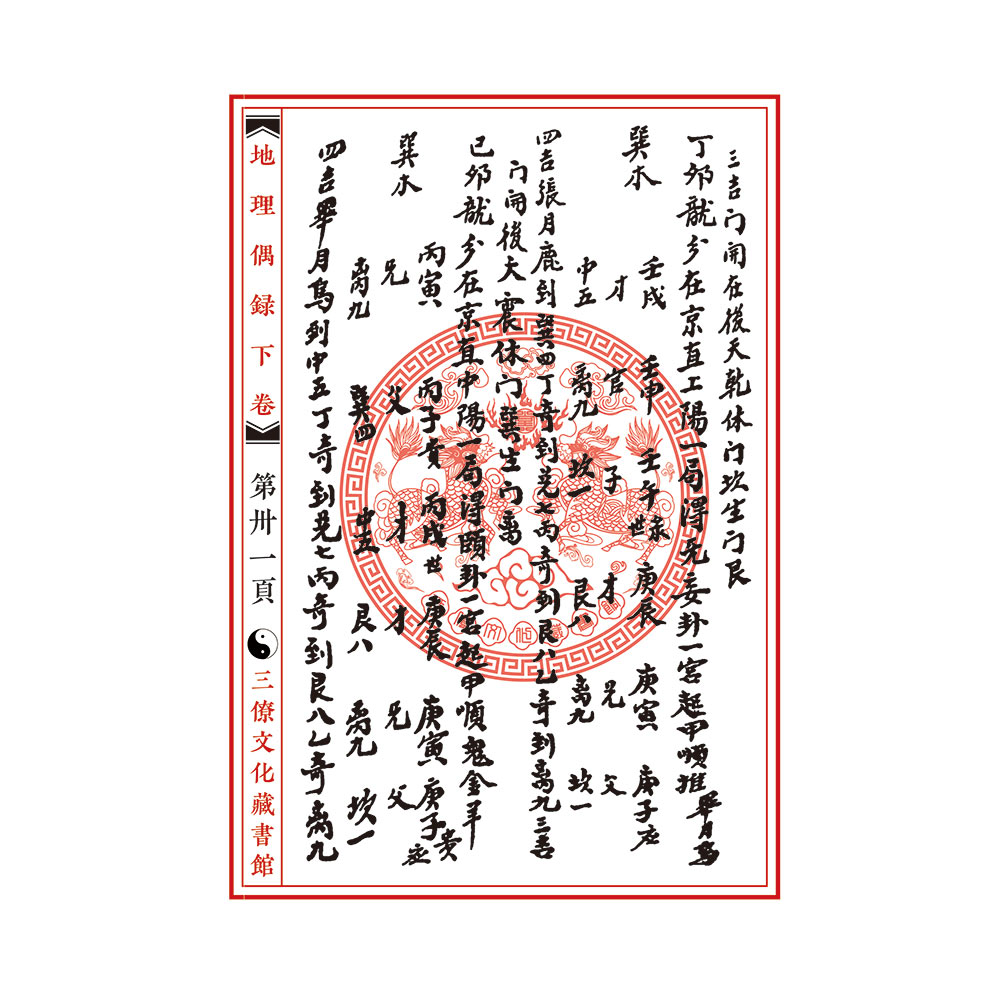 三吉门開在後天乾休门坎生门艮
丁夘龍分在京直上陽一局得无妄卦一宮起甲順推畢月烏
巽木 壬戌 壬申 壬午 世 永 庚辰 庚寅 庚子 应
才 官 子 才 兄 父
中五 离九 坎一 艮八 离九 坎一
四吉張月鹿到巽四丁奇到兑七丙奇到艮八乙奇到离九三吉
门開後天震休门巽生门离
已夘龍分在京直中陽一局得頤卦一宮起甲順鬼金羊
巽木 丙寅 丙子 貴 丙戌 世 庚辰 庚寅 庚子 貴 应
兄 父 才 才 兄 父
离九 巽四 中五 艮八 离九 坎一
四吉畢月烏到中五丁奇到兑七丙奇到艮八乙奇离九
地理偶録下卷
第卅一頁
三僚文化藏書館